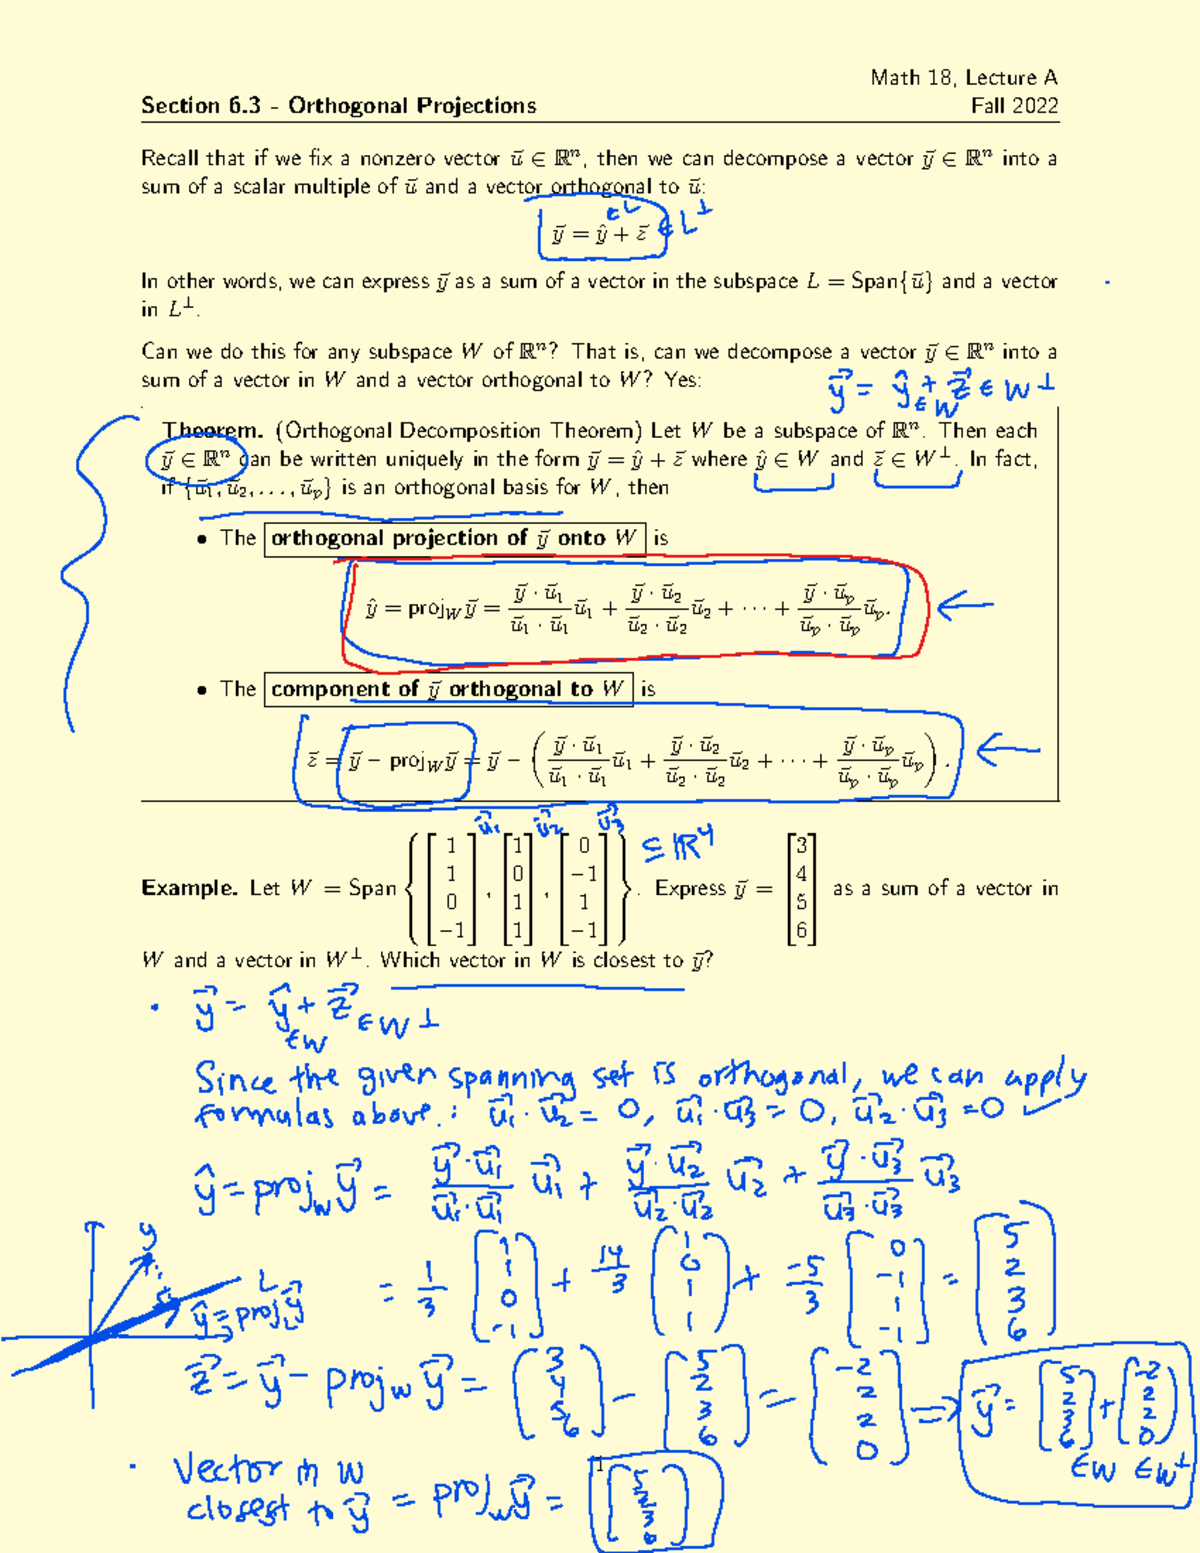 Math 18, Lecture A
Section 6.3 - Orthogonal Projections Fall 2022
Recall that if we fix a nonzero vector u⃗ ∈ ℝⁿ, then we can decompose a vector y⃗ ∈ ℝⁿ into a
sum of a scalar multiple of u⃗ and a vector orthogonal to u⃗:
∈L
y⃗ = ŷ + z⃗ ∈ L⊥
In other words, we can express y⃗ as a sum of a vector in the subspace L = Span{u⃗} and a vector
in L⊥.
Can we do this for any subspace W of ℝⁿ? That is, can we decompose a vector y⃗ ∈ ℝⁿ into a
sum of a vector in W and a vector orthogonal to W? Yes:
y⃗ = ŷ + z⃗ ∈ W⊥
∈W
Theorem. (Orthogonal Decomposition Theorem) Let W be a subspace of ℝⁿ. Then each
y⃗ ∈ ℝⁿ can be written uniquely in the form y⃗ = ŷ + z⃗ where ŷ ∈ W and z⃗ ∈ W⊥. In fact,
if {u⃗₁, u⃗₂, . . . , u⃗ₚ} is an orthogonal basis for W, then
• The orthogonal projection of y⃗ onto W is
ŷ = proj_W y⃗ = (y⃗ · u⃗₁)/(u⃗₁ · u⃗₁) u⃗₁ + (y⃗ · u⃗₂)/(u⃗₂ · u⃗₂) u⃗₂ + · · · + (y⃗ · u⃗ₚ)/(u⃗ₚ · u⃗ₚ) u⃗ₚ.
• The component of y⃗ orthogonal to W is
z⃗ = y⃗ − proj_W y⃗ = y⃗ − ( (y⃗ · u⃗₁)/(u⃗₁ · u⃗₁) u⃗₁ + (y⃗ · u⃗₂)/(u⃗₂ · u⃗₂) u⃗₂ + · · · + (y⃗ · u⃗ₚ)/(u⃗ₚ · u⃗ₚ) u⃗ₚ ).
u⃗₁ u⃗₂ u⃗₃
Example. Let W = Span { [1 1 0 −1], [1 0 1 1], [0 −1 1 −1] } ⊆ ℝ⁴. Express y⃗ = [3 4 5 6] as a sum of a vector in
W and a vector in W⊥. Which vector in W is closest to y⃗?
· y⃗ = ŷ + z⃗ ∈ W⊥
∈W
Since the given spanning set is orthogonal, we can apply
formulas above: u⃗₁ · u⃗₂ = 0, u⃗₁ · u⃗₃ = 0, u⃗₂ · u⃗₃ = 0 ✓
ŷ = proj_W y⃗ = (y⃗ · u⃗₁)/(u⃗₁ · u⃗₁) u⃗₁ + (y⃗ · u⃗₂)/(u⃗₂ · u⃗₂) u⃗₂ + (y⃗ · u⃗₃)/(u⃗₃ · u⃗₃) u⃗₃
y
L
ŷ = proj_L y⃗
= 1/3 [1 1 0 −1] + 14/3 [1 0 1 1] + −5/3 [0 −1 1 −1] = [5 2 3 6]
z⃗ = y⃗ − proj_W y⃗ = [3 4 5 6] − [5 2 3 6] = [−2 2 2 0] ⇒ y⃗ = [5 2 3 6] + [−2 2 2 0]
∈W ∈W⊥
· Vector in W
closest to y⃗ = proj_W y⃗ = [5 2 3 6]
1